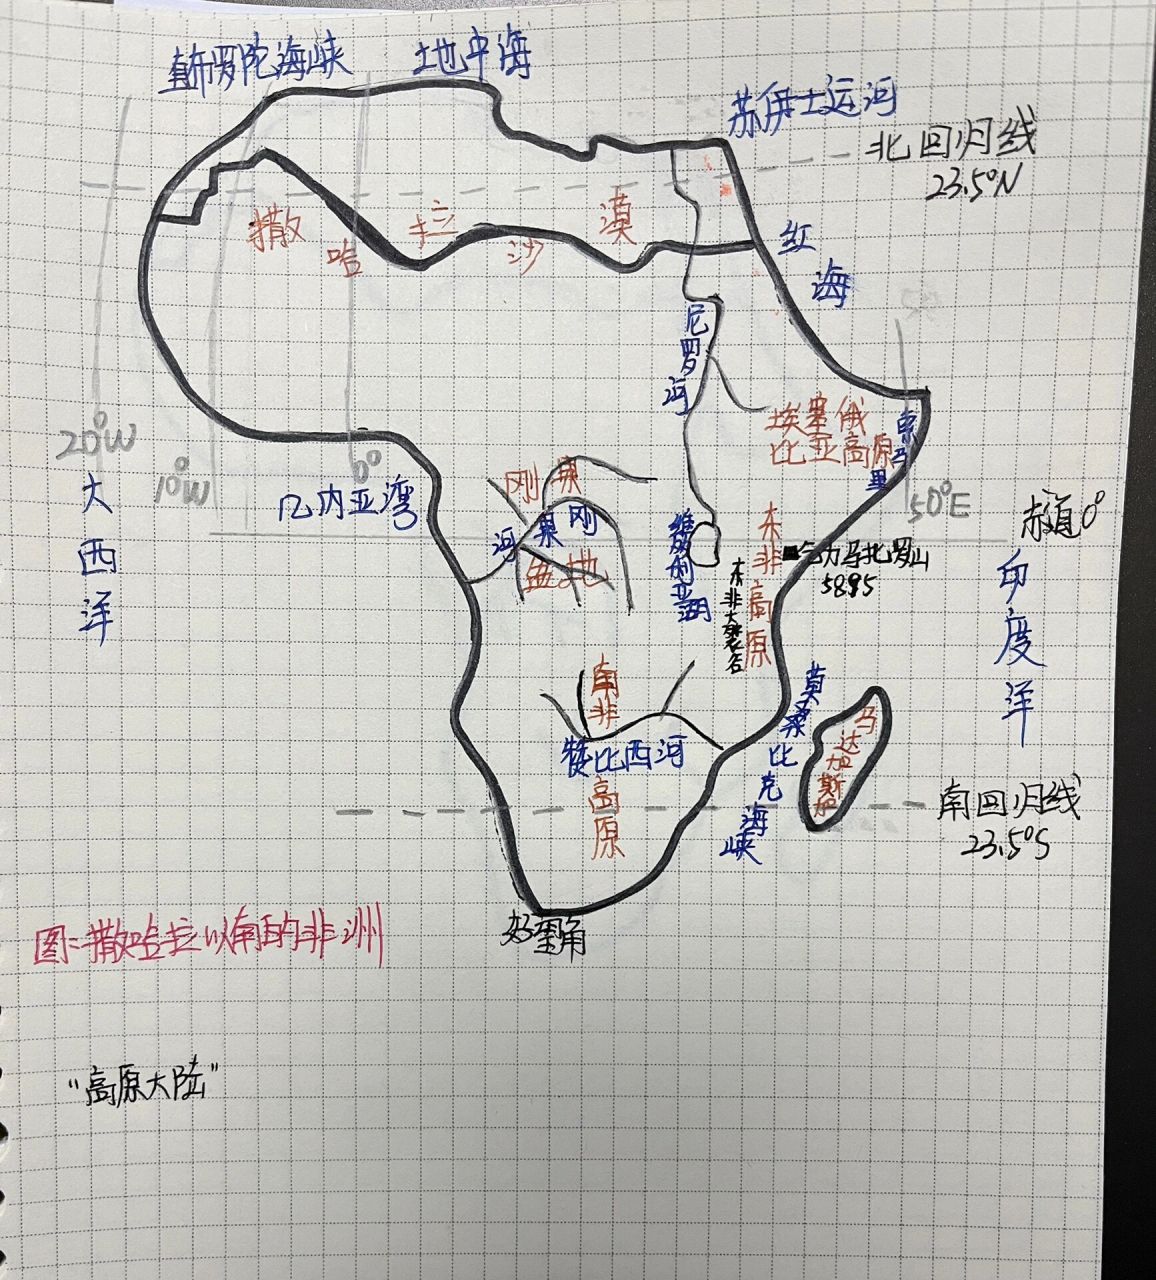 直布罗陀海峡
地中海
苏伊士运河
北回归线
23.5°N
撒哈拉沙漠
红海
尼罗河
20°W
10°W
0°
大西洋
几内亚湾
埃塞俄
比亚高原
索马里
50°E
赤道0°
刚果
盆地
刚果河
维多利亚湖
东非高原
东非大裂谷
乞力马扎罗山
5895
印度洋
南非高原
赞比西河
莫桑比克海峡
马达加斯加
南回归线
23.5°S
好望角
图二撒哈拉以南的非洲
“高原大陆”